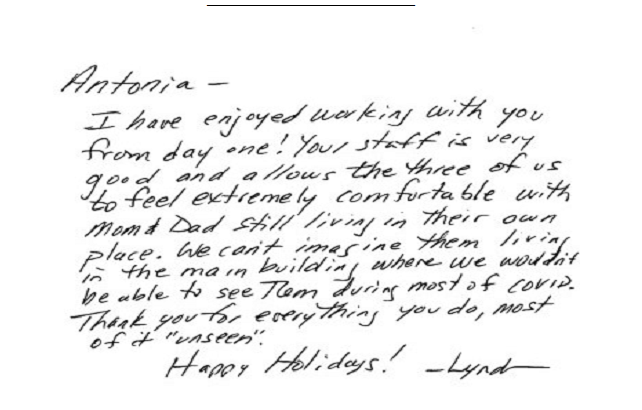 Antonia –
I have enjoyed working with you
from day one! Your staff is very
good and allows the three of us
to feel extremely comfortable with
Mom & Dad still living in their own
place. We can't imagine them living
in the main building where we wouldn't
be able to see them during most of covid.
Thank you for everything you do, most
of it "unseen".
Happy Holidays! –Lynd